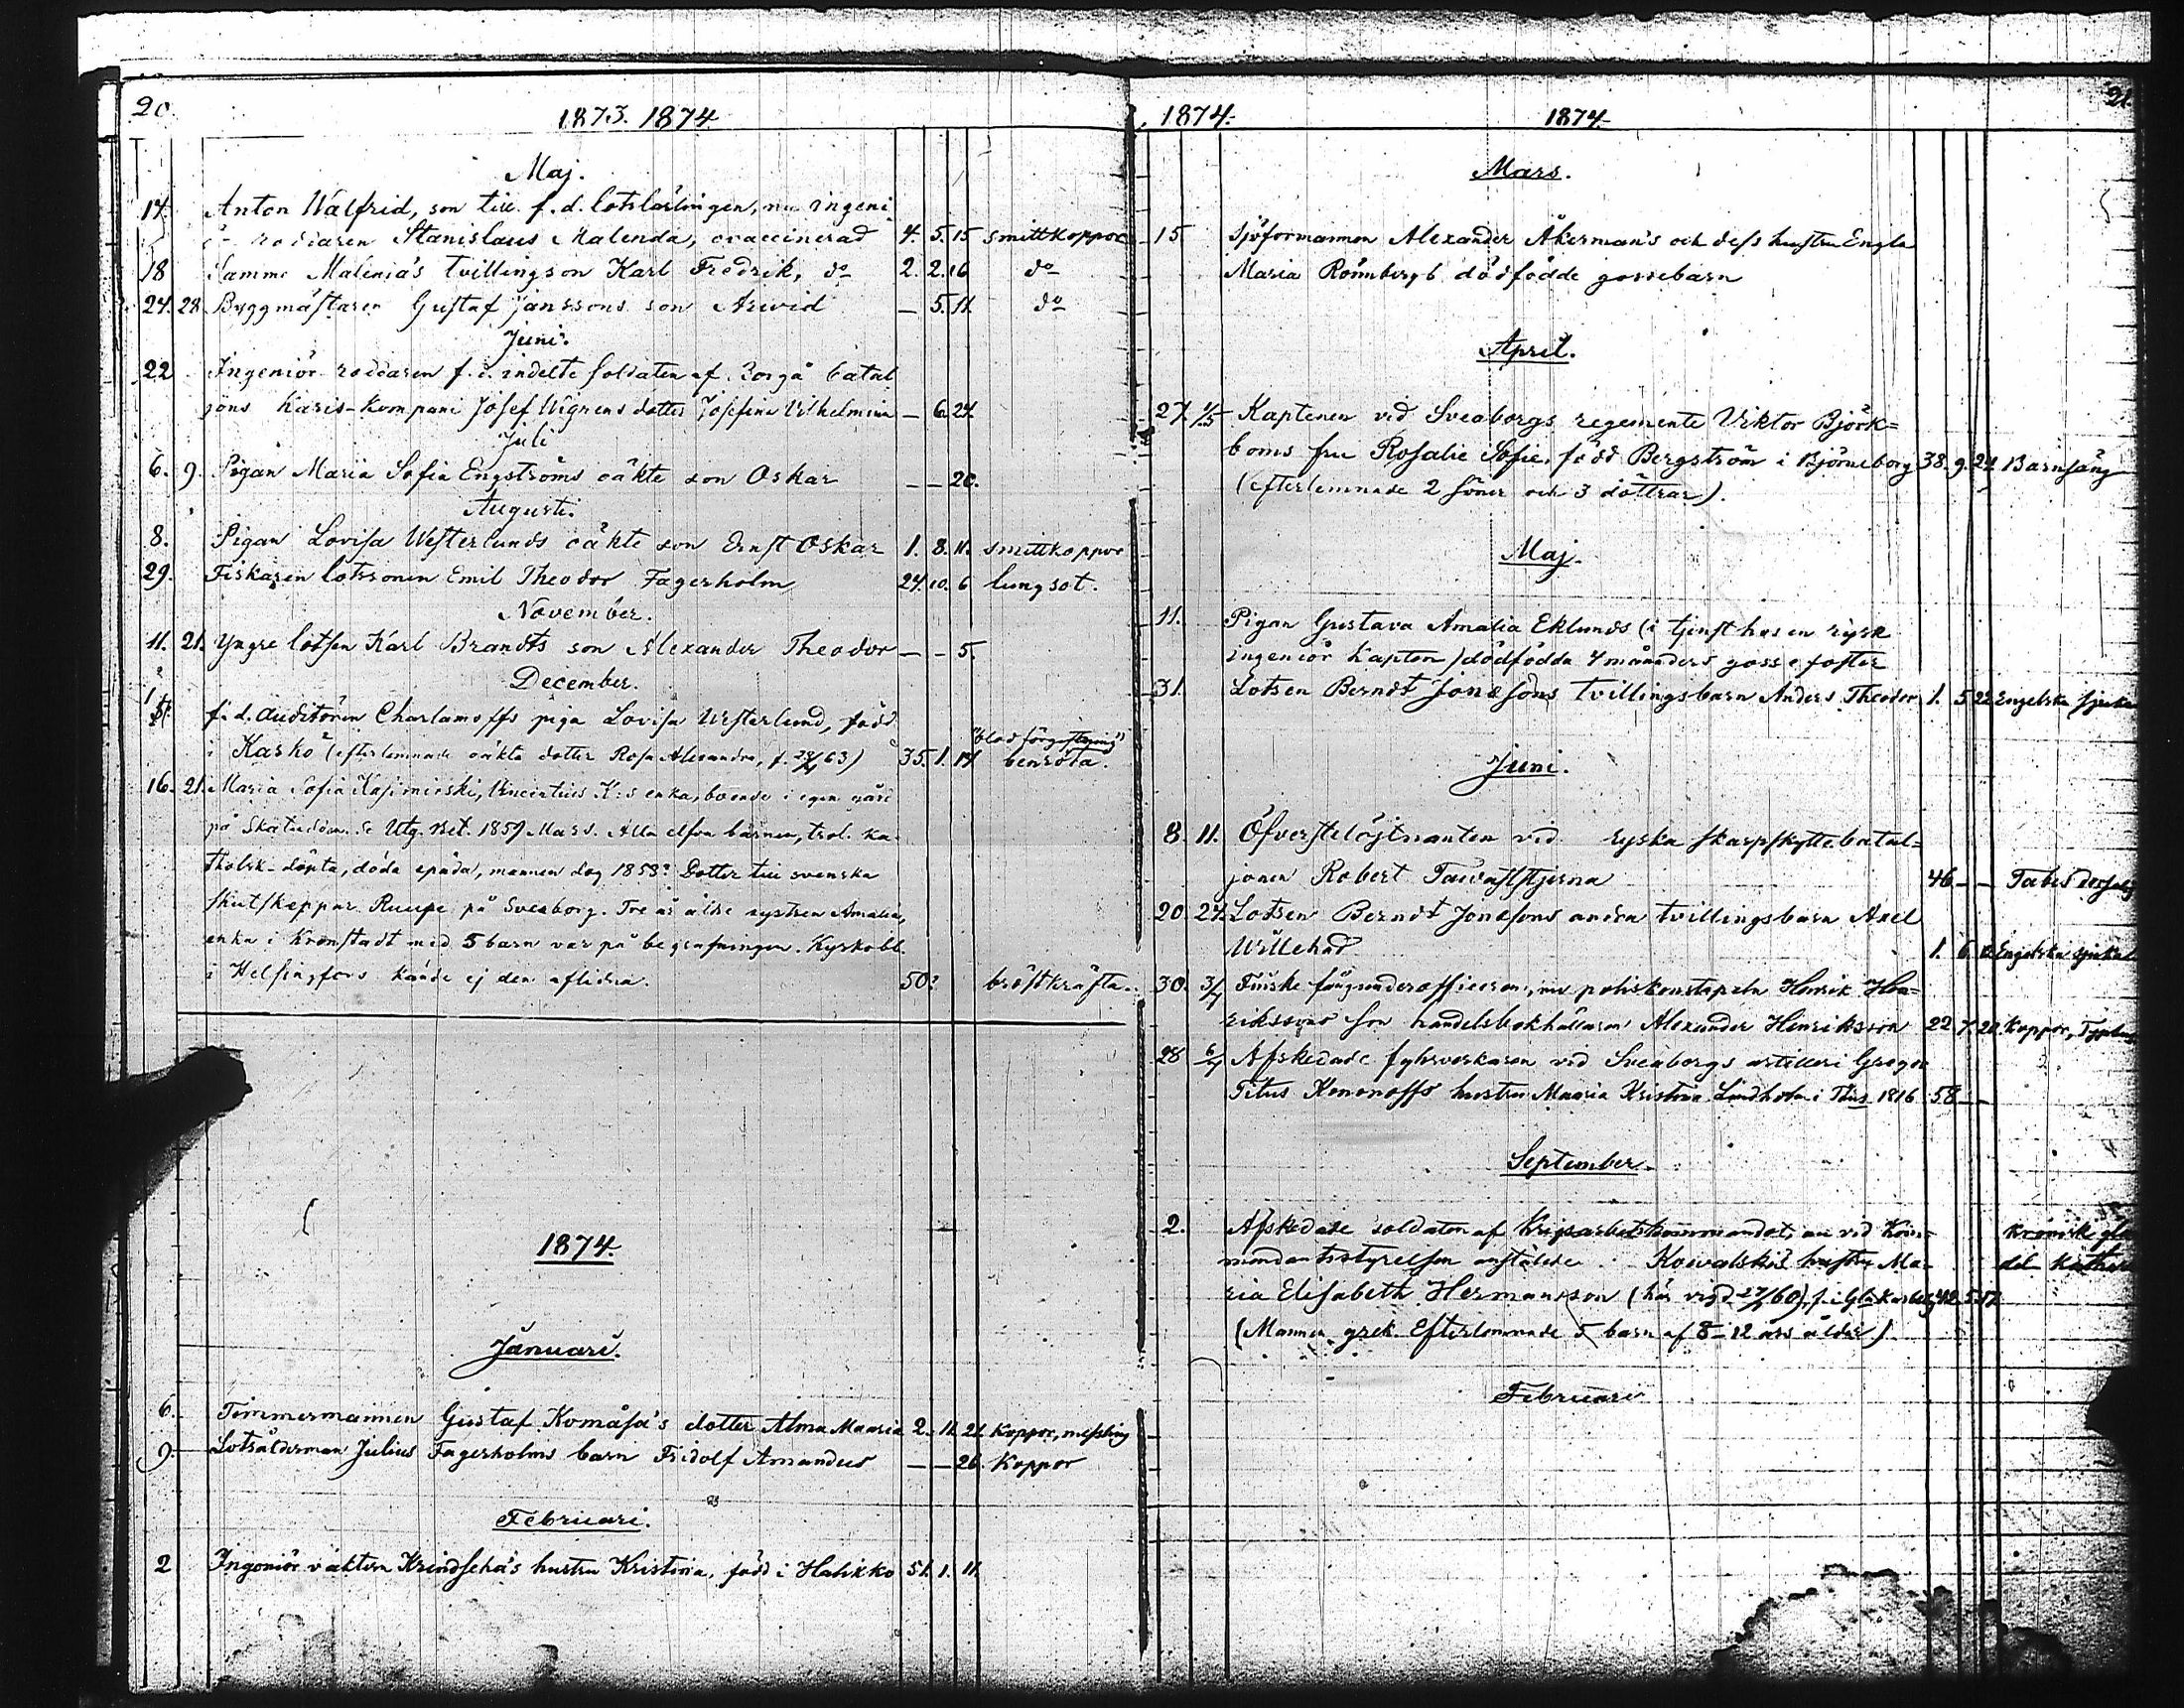 20.
1873. 1874
Maj.
17. Anton Walfrid, son till f. d. lotslärlingen, nu ingeni-
roddaren Stanislaus Malenda, ovaccinerad 4. 5. 15 smittkoppor
18 Samme Malenda's tvillingson Karl Fredrik, do 2. 2. 16 do
24. 28. Byggmästaren Gustaf Janssons son Arvid — 5. 11. do
Juni.
22 Ingeniör roddaren f. d. indelte soldaten af Borgå batal
jons Karis-kompani Josef Wigrens dotter Josefina Vilhelmina — 6. 24.
Juli
6. 9. Pigan Maria Sofia Engströms oäkte son Oskar — — 20.
Augusti.
8. Pigan Lovisa Westerlunds oäkte son Ernst Oskar 1. 8. 11. smittkoppor
29. Fiskaren lotssonen Emil Theodor Fagerholm 24. 10. 6 lungsot.
November.
11. 21. Yngre lotsen Karl Brandts son Alexander Theodor — — 5.
December.
f. d. Auditören Charlamoffs piga Lovisa Westerlund, född
i Kaskö (efterlemnade oäkta dotter Rosa Alexandra, f. 63) 35. 1. 14 benröta.
16. 21. Maria Sofia Kasimirski, K:s enka, boende i egen gård
på Skatudden. Se Utg. bet. 1859 Mars. Alla elfva barnen, trol. ka-
tholsk-döpta, döda späda, mannen dog 1858? Dotter till svenska
skutskeppar på Sveaborg. Tre år äldre systren Amalia,
enka i Kronstadt med 5 barn var på begrafningen. Kyrkobb.
i Helsingfors kände ej den aflidna. 50? bröstkräfta.
1874.
Januari.
6. Timmermannen Gustaf Komåsa's dotter Alma Maaria 2. 11. 21. Koppor, messling
9. Lotsålderman Julius Fagerholms barn Fridolf Amandus — — 26. Koppor
Februari.
2 Ingeniör vakten hustru Kristina, född i Halikko 51. 1. 11.
1874. 1874. 21.
Mars.
15. Sjöformannen Alexander Åkerman's och dess hustru Engla
Maria Rönnbergs dödfödde gossebarn
April.
27. 1/5 Kaptenen vid Sveaborgs regemente Viktor Björk=
boms fru Rosalie Sofie, född Bergström i Björneborg 38. 9. 24. Barnsäng
(efterlemnade 2 söner och 3 döttrar).
Maj.
11. Pigan Gustava Amalia Eklunds (i tjenst hos en rysk
ingeniör kapten) dödfödda 7 månaders gosse foster
31. Lotsen Berndt Jonssons tvillingsbarn Anders Theodor 1. 5 22 Engelska
Juni.
8. 11. Öfverstelöjtnanten vid ryska skarpskyttebatal=
jonen Robert Tawaststjerna 46 — — Tabes dorsalis
20. 24. Lotsen Berndt Jonssons andra tvillingsbarn Axel
Willehad 1. 6. Engelska sjukan
30. 3/7 Finske underofficeren, nu poliskonstapeln Henrik Hen=
rikssons son handelsbokhållaren Alexander Henriksson 22. 7. 20. Koppor,
28 6/7 Afskedade fyhrverkaren vid Sveaborgs artilleri Gregor
Titus Kononoffs hustru Maaria Kristina Lindholm i 1816 58 — —
September.
2. Afskedade soldaten af Krigsarbetskommandot, nu vid Kom-
mendantsstyrelsen anstälde Kowalskis hustru Ma-
ria Elisabeth Hermansson (här vigd /60)
(Mannen grek. Efterlemnade 5 barn af 8–12 års ålder).
Februari